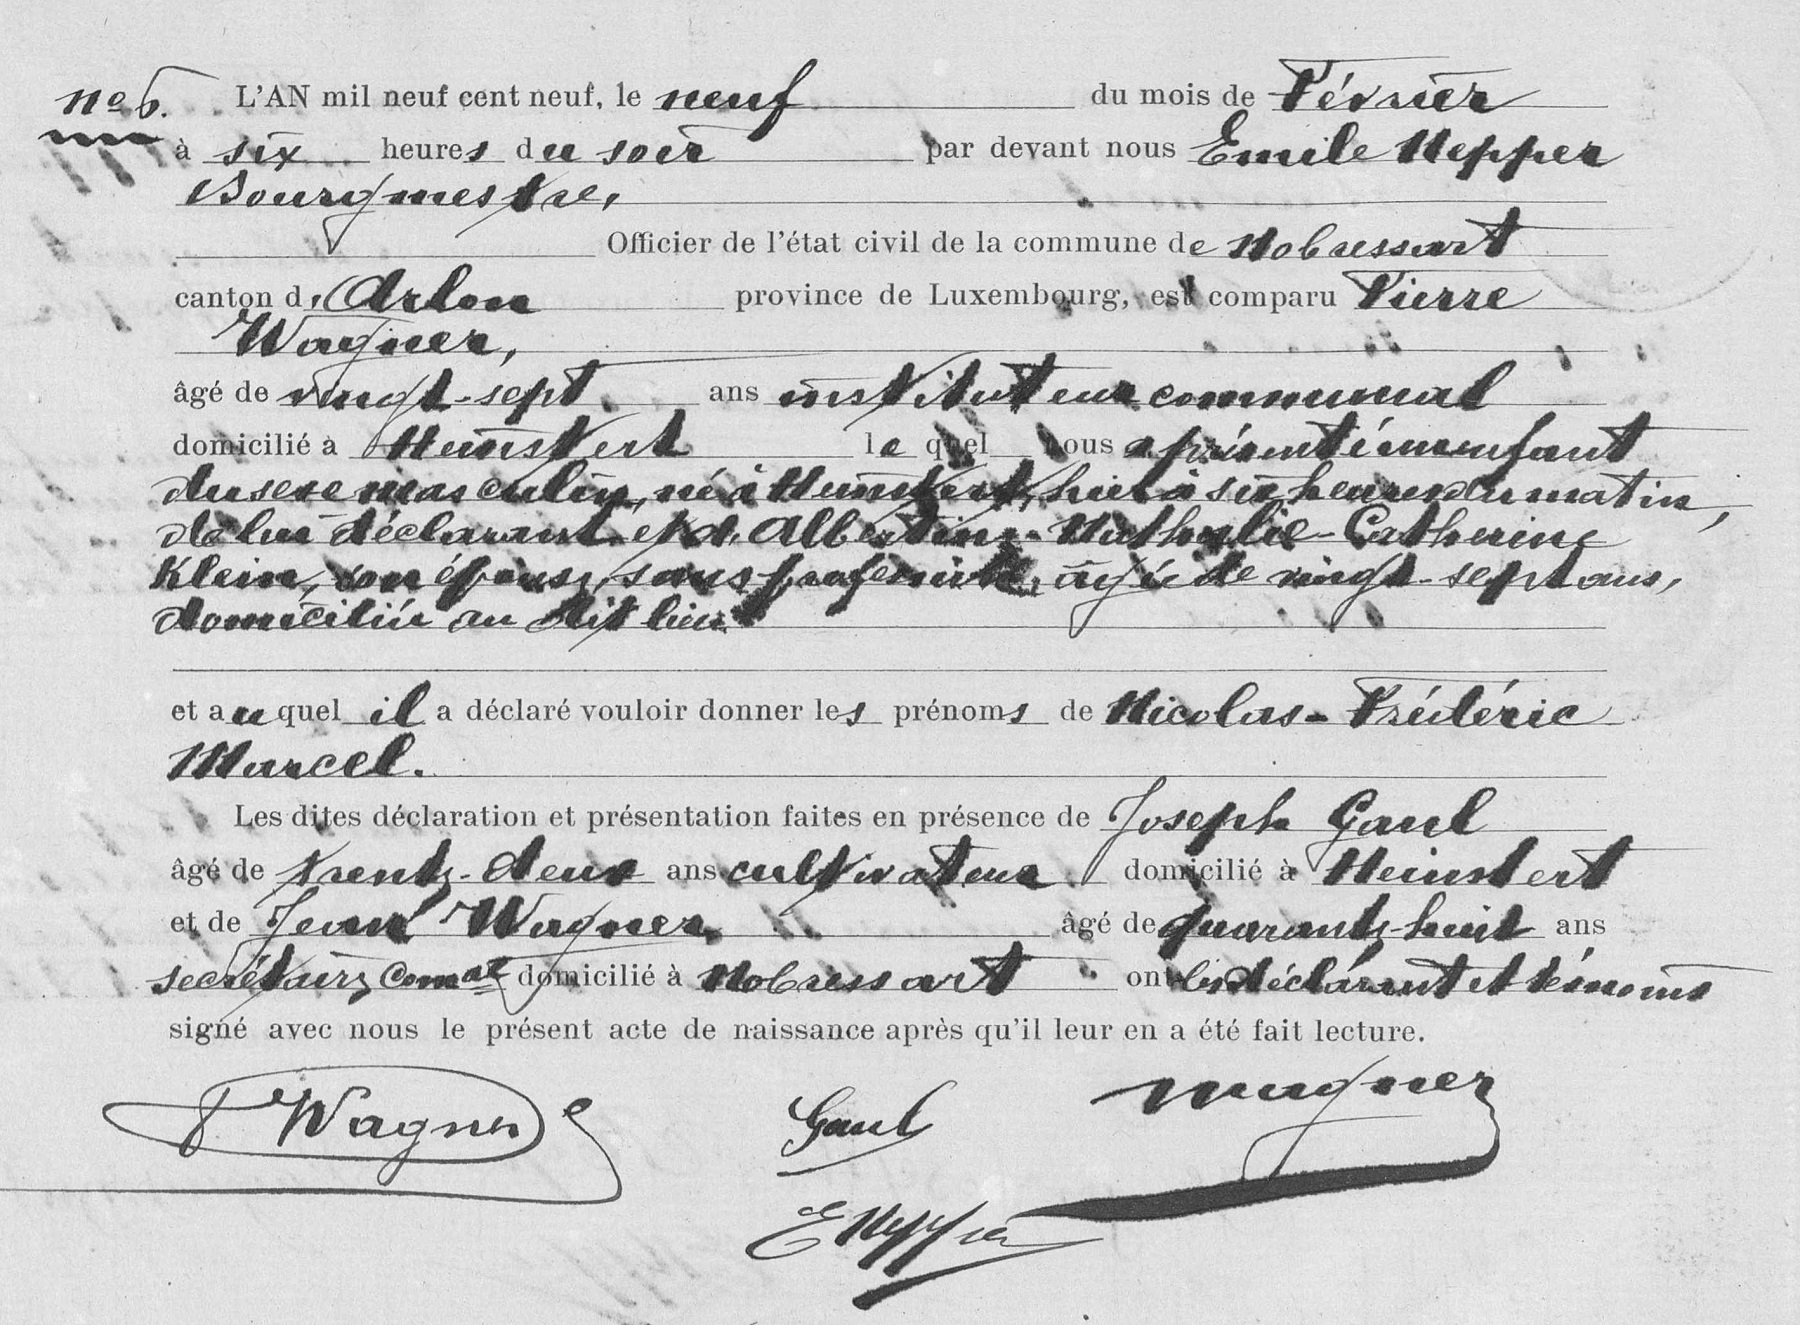 No 6. L'AN mil neuf cent neuf, le neuf du mois de Février
à six heures du soir par devant nous Emile Hepper
Bourgmestre,
Officier de l'état civil de la commune de Nobressart
canton d'Arlon province de Luxembourg, est comparu Pierre
Wagner,
âgé de vingt-sept ans instituteur communal
domicilié à Heinstert lequel nous a présenté un enfant
du sexe masculin, né à Heinstert, hier à six heures du matin,
de lui déclarant et d'Albertine-Nathalie-Catherine
Klein, son épouse, sans profession, âgée de vingt-sept ans,
domiciliée au dit lieu
et auquel il a déclaré vouloir donner les prénoms de Nicolas-Frédéric
Marcel.
Les dites déclaration et présentation faites en présence de Joseph Gaul
âgé de trente-deux ans cultivateur domicilié à Heinstert
et de Jean Wagner, âgé de quarante-huit ans
secrétaire comal domicilié à Nobressart ont les déclarant et témoins
signé avec nous le présent acte de naissance après qu'il leur en a été fait lecture.
P Wagner Gaul Wagner
E Hepper